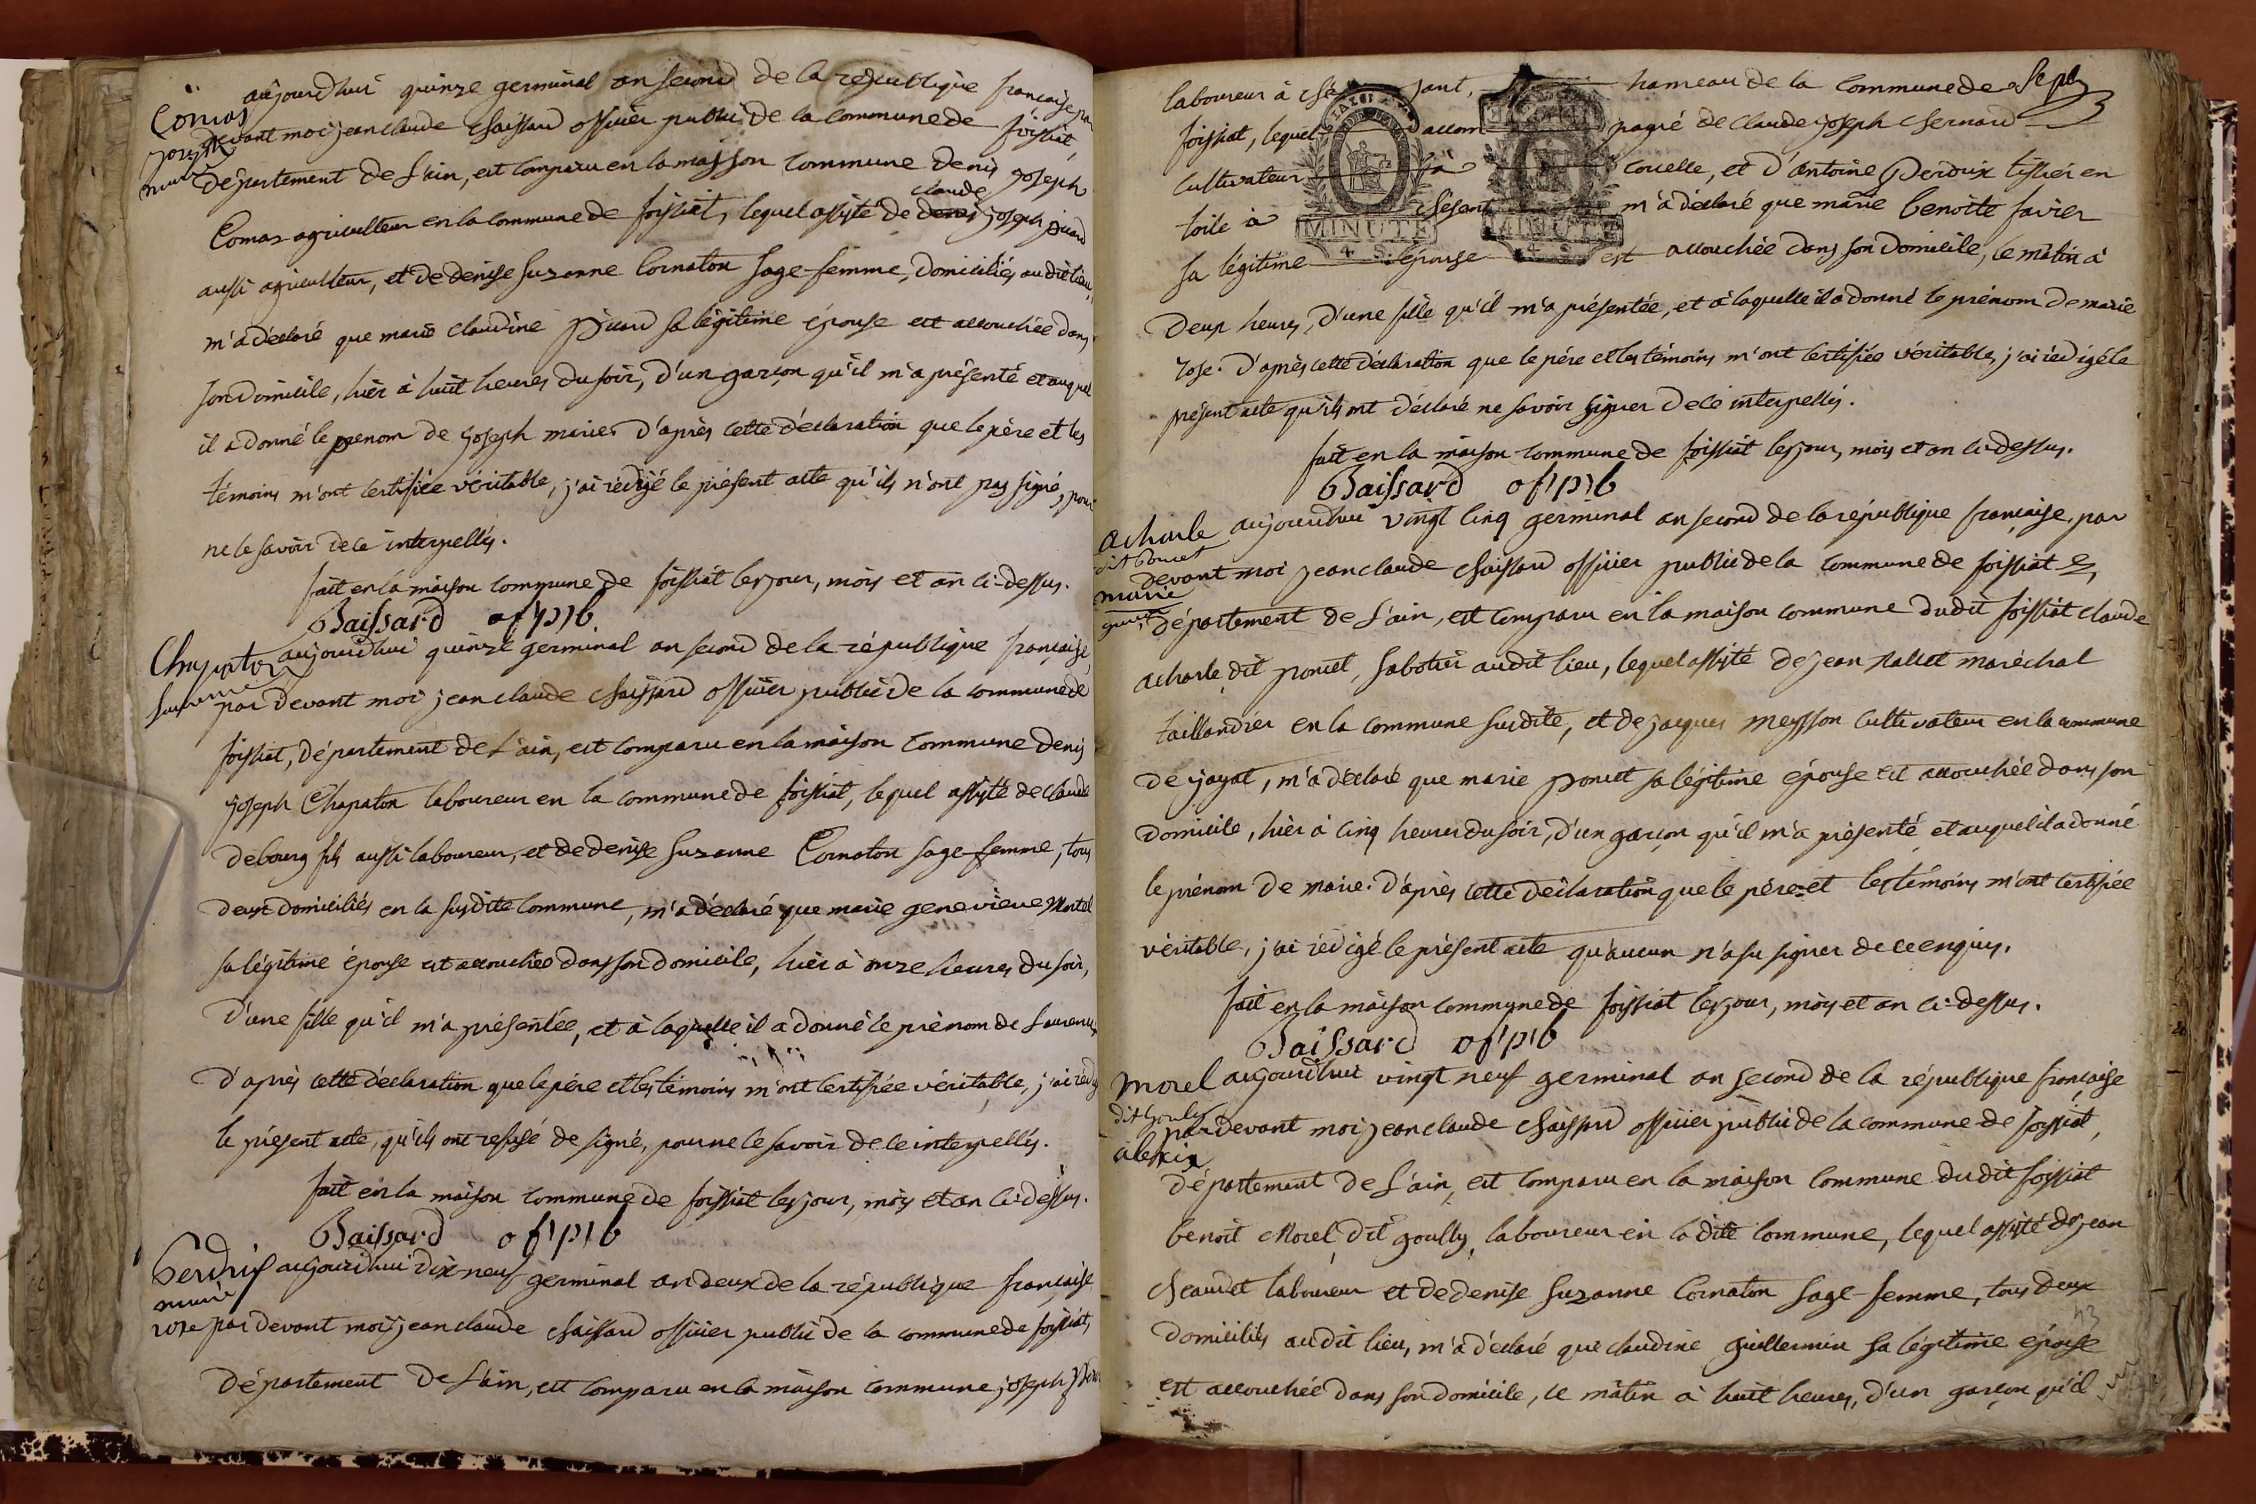 aujourdhui quinze germinal an second de la république française, par
Comas
devant moi jean claude chaissard officier public de la commune de foissiat,
joseph
marie
département de L'ain, est comparu en la maison commune denis joseph
claude
Comas agriculteur en la commune de foissiat, lequel assisté de denis joseph picard
aussi agriculteur, et de denise suzanne Cornaton sage-femme, domiciliés au dit lieu,
m'a déclaré que marie claudine picard sa légitime épouse est accouchée dans
son domicile, hier à huit heures du soir, d'un garçon qu'il m'a présenté et auquel
il a donné le prenom de joseph marie. d'après cette déclaration que le père et les
témoins m'ont certifiée véritable, j'ai rédigé le présent acte qu'ils n'ont pas signé, pour
ne le savoir de ce interpellés.
fait en la maison commune de foissiat les jour, mois et an ci-dessus.
Baissard of. p.
Chapaton aujourdhui quinze germinal an second de la république française,
par devant moi jean claude chaissard officier public de la commune de
foissiat, département de L'ain, est comparu en la maison commune denis
joseph Chapaton laboureur en la commune de foissiat, lequel assisté de claude
debourg fils aussi laboureur, et de denise suzanne Cornaton sage-femme, tous
deux domiciliés en la susdite commune, m'a déclaré que marie geneviève Martel
sa légitime épouse est accouchée dans son domicile, hier à onze heures du soir,
d'une fille qu'il m'a présentée, et à laquelle il a donné le prénom de
d'après cette déclaration que le père et les témoins m'ont certifiée véritable, j'ai rédigé
le présent acte, qu'ils ont refusé de signé, pour ne le savoir de ce interpellés.
fait en la maison commune de foissiat les jour, mois et an ci-dessus.
Baissard of. p.
aujourdhui dix-neuf germinal an deux de la république française
marie
rose par devant moi jean claude chaissard officier public de la commune de foissiat,
département de L'ain, est comparu en la maison commune joseph
laboureur à hameau de la commune de
foissiat, lequel accompagné de claude joseph chernard
cultivateur à corcelle, et d'antoine Perdrix tissier en
toile à m'a déclaré que marie benoite favier
MINUTE MINUTE
sa légitime épouse est accouchée dans son domicile, ce matin à
deux heures, d'une fille qu'il m'a présentée, et à laquelle il a donné le prénom de marie
rose. d'après cette déclaration que le père et les témoins m'ont certifiée véritable, j'ai rédigé le
présent acte qu'ils ont déclaré ne savoir signer de ce interpellés.
fait en la maison commune de foissiat les jour, mois et an ci-dessus.
Baissard of. p.
acharle aujourdhui vingt cinq germinal an second de la république française, par
dit poncet
devant moi jean claude chaissard officier public de la commune de foissiat
marie
département de L'ain, est comparu en la maison commune dudit foissiat claude
acharle dit poncet, sabotier audit lieu, lequel assisté de jean pallet maréchal
taillandier en la commune susdite, et de jacques meysson cultivateur en la commune
de jayat, m'a déclaré que marie poncet sa légitime épouse est accouchée dans son
domicile, hier à cinq heures du soir, d'un garçon qu'il m'a présenté et auquel il a donné
le prénom de marie. d'après cette déclaration que le père et les témoins m'ont certifiée
véritable, j'ai rédigé le présent acte qu'aucun n'a su signer de ce enquis.
fait en la maison commune de foissiat les jour, mois et an ci-dessus.
Baissard of. p.
morel aujourdhui vingt neuf germinal an second de la république française
dit goully
par devant moi jean claude chaissard officier public de la commune de foissiat,
alexix
département de L'ain, est comparu en la maison commune dudit foissiat
benoit Morel dit goully, laboureur en la dite commune, lequel assisté de jean
laboureur et de denise suzanne Cornaton sage-femme, tous deux
domiciliés audit lieu, m'a déclaré que claudine guillermin sa légitime épouse
est accouchée dans son domicile, ce matin à huit heures, d'un garçon qu'il